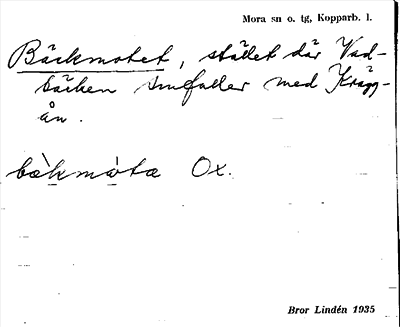 Mora sn o. tg, Kopparb. l.
Bäckmotet, stället där Vad-
bäcken smfaller med Krägg-
ån.
bækmòtæ Ox.
Bror Lindén 1935